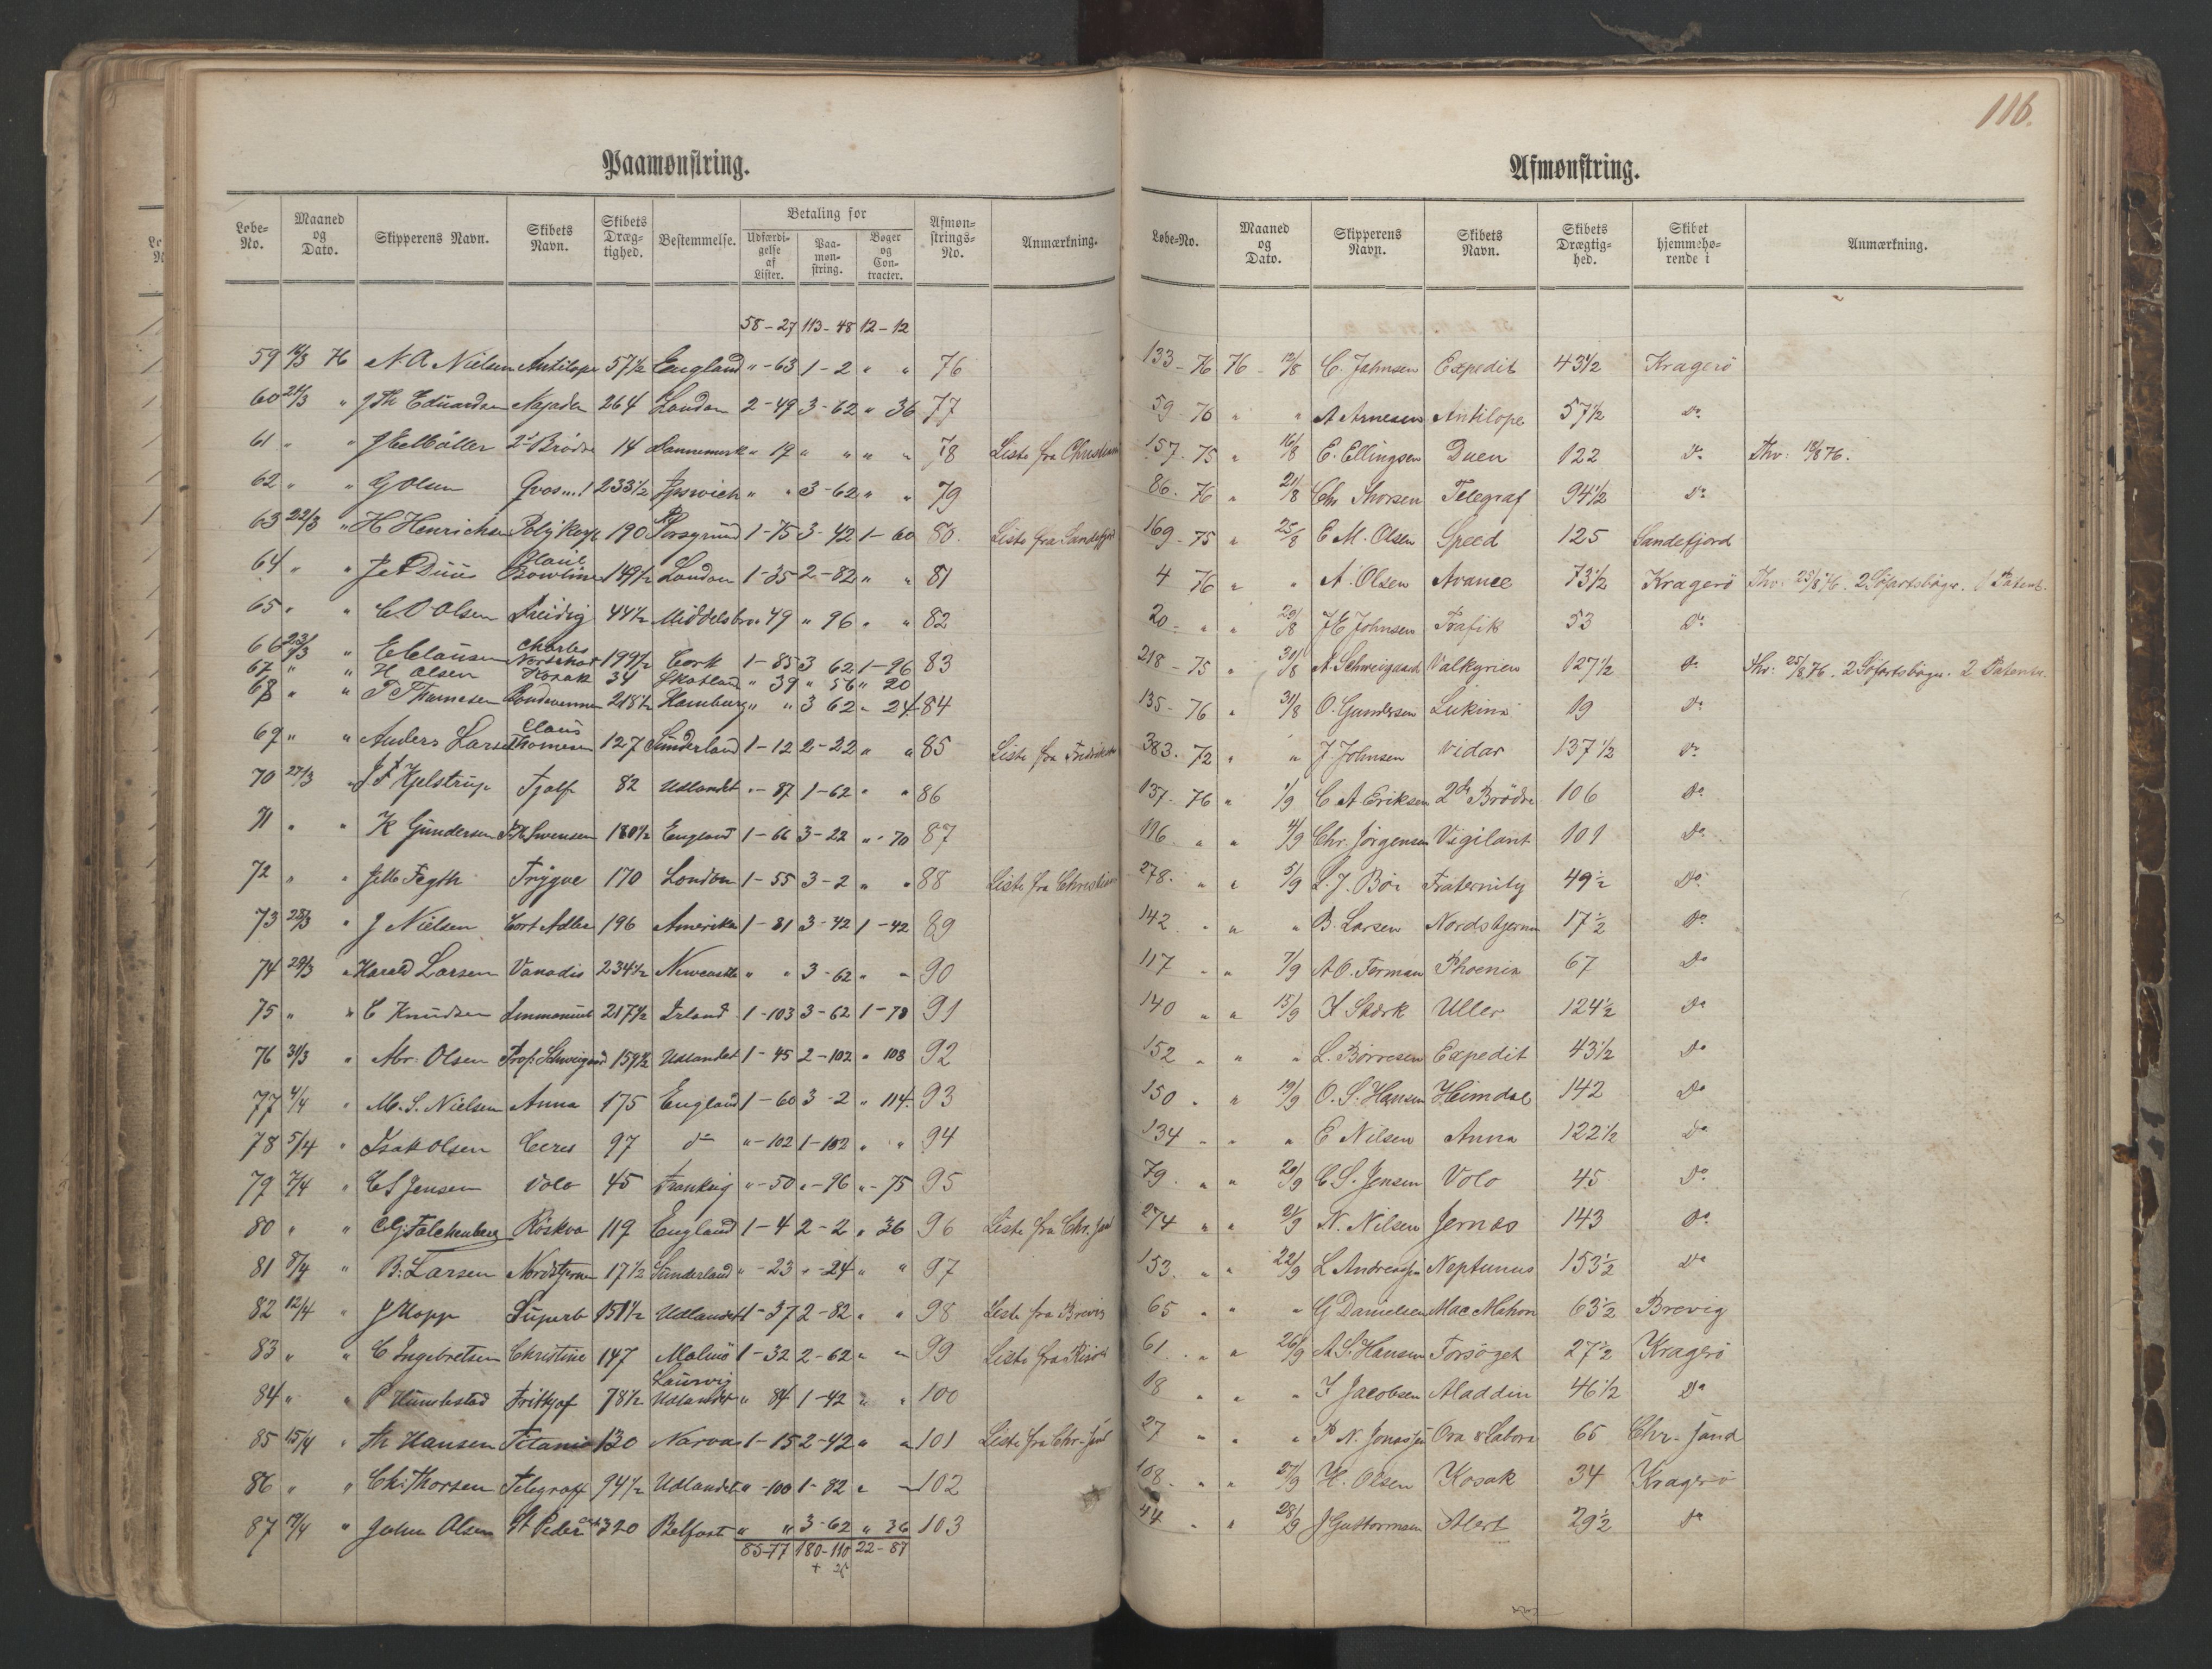 116.
Paamønstring.
Løbe-No. Maaned og Dato. Skipperens Navn. Skibets Navn. Skibets Dræg-tighed. Bestemmelse. Betaling for Udfærdi-gelse af Lister. Paa-møn-string. Bøger og Con-tracter. Afmøn-strings-No. Anmærkning.
58-27 113-48 12-12
59 14/3 76 N. A Nielsen Antilope 57 1/2 England " -63 1-2 " " 76
60 21/3 " J Th Eduardsen Najaden 264 London 2-49 3-62 " 36 77
61 " " 2de Brødre 14 Dannemark " 19 " " " " 78 Liste fra
62 " " G Olsen 233 1/2 Ipswich " " 3-62 " " 79
63 22/3 " H Henrichsen 190 Porsgrund 1-75 3-42 1-60 80. Liste fra Sandefjord
64 " " 149 1/2 London 1-35 2-82 " " 81
65 " " C. O Olsen Freidig 44 1/2 Middelsbro " 49 " 96 " " 82
66 23/3 " E Clausen Charles 199 1/2 Cork 1-85 3 62 1-96 83
67 " " H Olsen Kosak 34 Skotland " 39 " 56 " 20
68 " " T Thomesen 218 1/2 Hamburg " " 3 62 " 24 84
69 " " Anders Larsen Claus Thomesen 127 Sunderland 1-12 2-22 " " 85 Liste fra
70 27/3 " Kjelstrup Fjalf 82 Udlandet " -87 1-62 " " 86
71 " " K Gundersen 180 1/2 England 1-66 3-22 " -70 87
72 " " Trygve 170 London 1-55 3-2 " " 88 Liste fra
73 28/3 " J Nielsen Cort Adler 196 Amerika 1-81 3-42 1-42 89
74 29/3 " Harald Larsen Vanadis 234 1/2 Newcastle " " 3-62 " " 90
75 " " C Knudsen Immanuel 217 1/2 Irland 1-103 3-62 1-78 91
76 31/3 " Abr: Olsen Prof: Schweigaard 159 1/2 Udlandet 1-45 2-102 " 108 92
77 4/4 " M. S. Nielsen Anna 175 England 1-60 3-2 " 114. 93
78 5/4 " Isak Olsen Ceres 97 do " -102 1-102 " " 94
79 7/4 " C S Jensen Volo 45 Frankrig " -50 " -96 " -75 95
80 " " C G Falchenberg Röskva 119 England 1-4 2-2 " 36 96 Liste fra Chr. sand
81 8/4 " B: Larsen Nordstjernen 17 1/2 Sunderland " -23 " -24 " " 97
82 12/4 " J Klopp Superb 151 1/2 Udlandet 1-37 2-82 " " 98 Liste fra Brevig
83 " " C Ingebretsen Christine 147 Malmö 1-32 2-62 " " 99 Liste fra Risör
84 " " P Frithjof 78 1/2 Laurvig Udlandet " 84 1-42 " " 100
85 15/4 " Th Hansen Titania 130 Narva 1-15 2-42 " " 101 Liste fra Chr. sand
86 " " Chr: Thorsen Telegraff 94 1/2 Udlandet " -100 1-82 " " 102
87 19/4 " John Olsen St Peder 320 Belfast " " 3-62 " 36 103
85-77 180-110 22-87
Afmønstring.
Løbe-No. Maaned og Dato. Skipperens Navn. Skibets Navn. Skibets Drægtig-hed. Skibet hjemmehø-rende i Anmærkning.
133-76 76 - 12/8 C. Jahnsen Expedit 43 1/2 Kragerö
59-76 " " A Arnesen Antilope 57 1/2 Do
157.75 " 16/8 E. Ellingsen Duen 122 Do Thv: 19/8 76.
86.76 " 21/8 Chr Thorsen Telegraf 94 1/2 Do
169-75 " 25/8 E M. Olsen Speed 125 Sandefjord
4 76 " " A. Olsen Avance 73 1/2 Kragerö Thv: 25/8 76. 2 Söfartsböger. 1 Patent.
20 - " " 29/8 J E Johnsen Trafik 53 Do
218-75 " 30/8 A Schweigaard Valkyrien 127 1/2 Do Thv: 25/8 76. 2 Söfartsböger. 2 Patenter.
135-76 " 31/8 O. Gundersen Lukina 19 Do
383.72 " " J. Johnsen Vidar 137 1/2 Do
137.76 " 1/9 C A Eriksen 2de Brødre 106 Do
116 " " 4/9 Chr. Jörgensen Vigilant 101 Do
278. " " 5/9 L. J. Böe Fraternity 49 1/2 Do
142 " " " B. Larsen Nordstjernen 17 1/2 Do
117 " " 7/9 A O. Terman Phoenix 67 Do
140 " " 15/9 Uller 124 1/2 Do
152 " " " L. Börresen Expedit 43 1/2 Do
150 " " 19/9 O. S. Hansen Heimdal 142 Do
134 " " " E Nilsen Anna 122 1/2 Do
79. " " 20/9 C S. Jensen Volo 45 Do
274 " " 21/9 N. Nilsen Jernæs 143 Do
153. " " 22/9 L Andreassen Neptunus 153 1/2 Do
65 " " " G Danielsen Mac Mahon 63 1/2 Brevig
61 " " 26/9 A S. Hansen Forsöget 27 1/2 Kragerö
18 " " " Jacobsen Aladdin 46 1/2 Do
27 " " " P N. Jonassen Ora & Labora 65 Chr. sand
108 " " 27/9 H. Olsen Kosak 34 Kragerö
44 " " 28/9 J Guttormsen Alert 29 1/2 Do